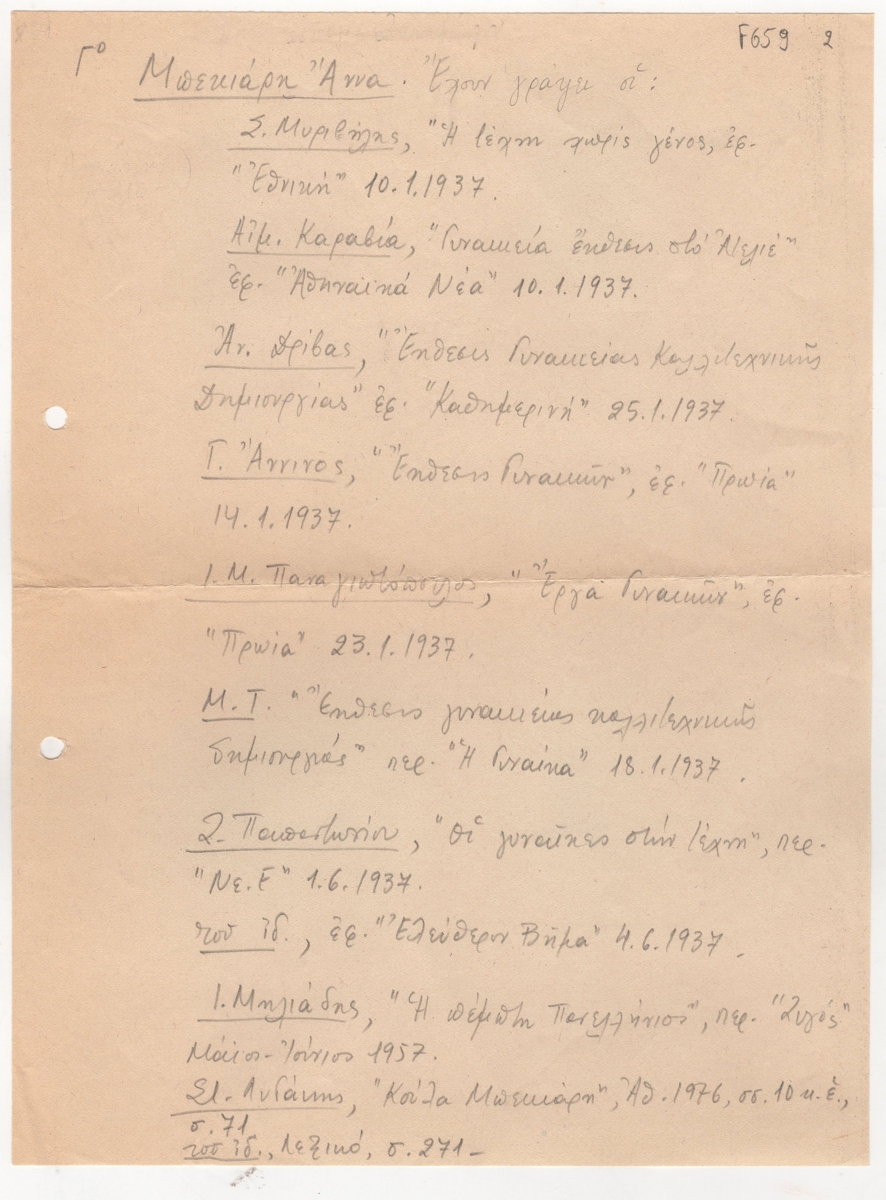 F659 2
Γο
Μπεκιάρη Ἄννα. Ἔχουν γράψει οἱ:
Σ. Μυριβήλης, "Ἡ τέχνη χωρίς γένος, ἐφ.
"Ἐθνική" 10.1.1937.
Αἰμ. Καραβία, "Γυναικεία ἔκθεσις στό Ἀτελιέ"
ἐφ. "Ἀθηναϊκά Νέα" 10.1.1937.
Ἀν. Δρίβας, "Ἔκθεσις Γυναικείας Καλλιτεχνικῆς
Δημιουργίας" ἐφ. "Καθημερινή" 25.1.1937.
Γ. Ἄννινος, "Ἔκθεσις Γυναικῶν", ἐφ. "Πρωία"
14.1.1937.
Ι. Μ. Παναγιωτόπουλος, "Ἔργα Γυναικῶν", ἐφ.
"Πρωία" 23.1.1937.
Μ. Τ. "Ἔκθεσις γυναικείας καλλιτεχνικῆς
δημιουργίας" περ. "Ἡ Γυναίκα" 18.1.1937.
Ζ. Παπαντωνίου, "Οἱ γυναῖκες στήν τέχνη", περ.
"Νε. Ε" 1.6.1937.
τοῦ ἰδ., ἐφ. "Ἐλεύθερον Βῆμα" 4.6.1937.
Ι. Μηλιάδης, "Ἡ πέμπτη Πανελλήνιος", περ. "Ζυγός"
Μάιος-Ἰούνιος 1957.
Στ. Λυδάκης, "Κούλα Μπεκιάρη", Ἀθ. 1976, σσ. 10 κ.ἑ.,
σ. 71
τοῦ ἰδ., Λεξικό, σ. 271 –